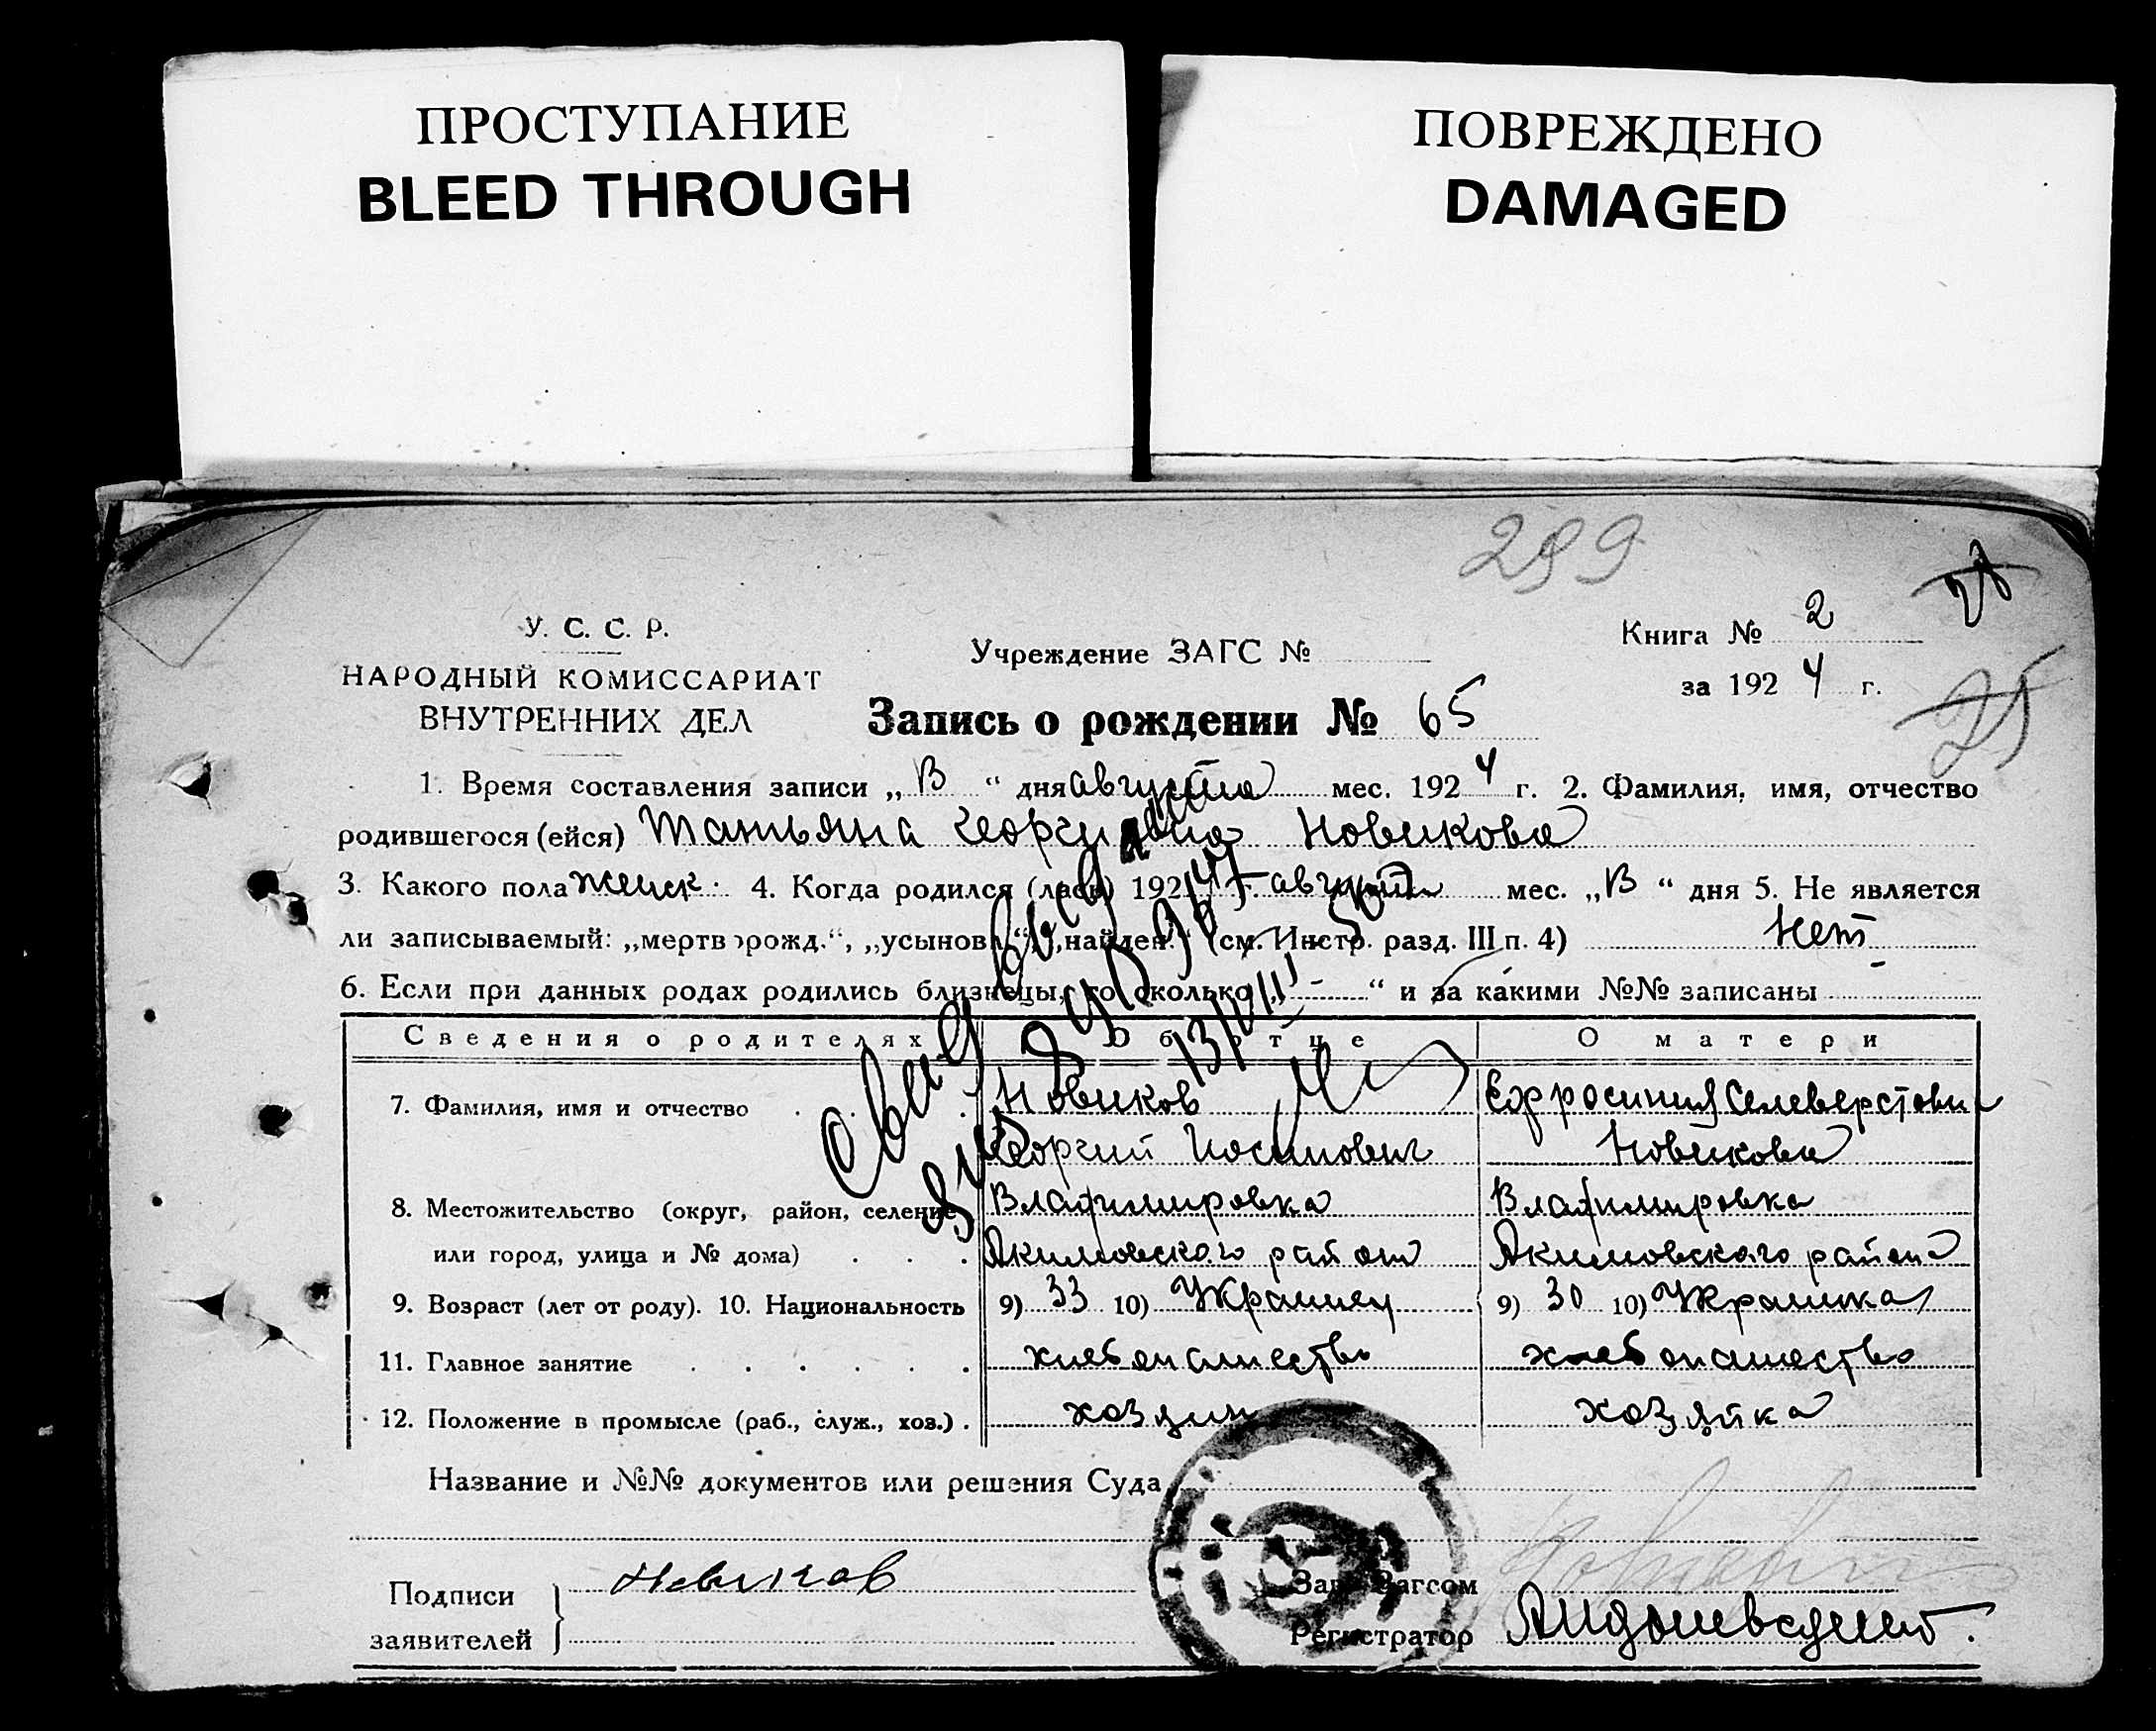 ПРОСТУПАНИЕ
BLEED THROUGH
ПОВРЕЖДЕНО
DAMAGED
299
28
25
У. С. С. Р.
НАРОДНЫЙ КОМИССАРИАТ
ВНУТРЕННИХ ДЕЛ
Учреждение ЗАГС №
Книга № 2
за 1924 г.
Запись о рождении № 65
1. Время составления записи „ В “ дня августа мес. 1924 г. 2. Фамилия, имя, отчество
родившегося (ейся) Татьяна Георгиевна Новикова
3. Какого пола женск. 4. Когда родился (лась) 1924 г. августа мес. „ В “ дня 5. Не является
ли записываемый: „мертворожд.“, „усыновл.“, „найден.“ (см. Инстр. разд. III п. 4) Нет
6. Если при данных родах родились близнецы, то сколько „ - “ и за какими №№ записаны -
Сведения о родителях Об отце О матери
7. Фамилия, имя и отчество Новиков Ефросиния Селеверстовн
Георгий Иосипович Новикова
8. Местожительство (округ, район, селение Владимировка Владимировка
или город, улица и № дома) Акимовского района Акимовского района
9. Возраст (лет от роду). 10. Национальность 9) 33 10) Украинец 9) 30 10) Украинка
11. Главное занятие хлебопашество хлебопашество
12. Положение в промысле (раб., служ., хоз.) хозяин хозяйка
Название и №№ документов или решения Суда
Подписи
заявителей
Новиков
Зав. Загсом
Регистратор